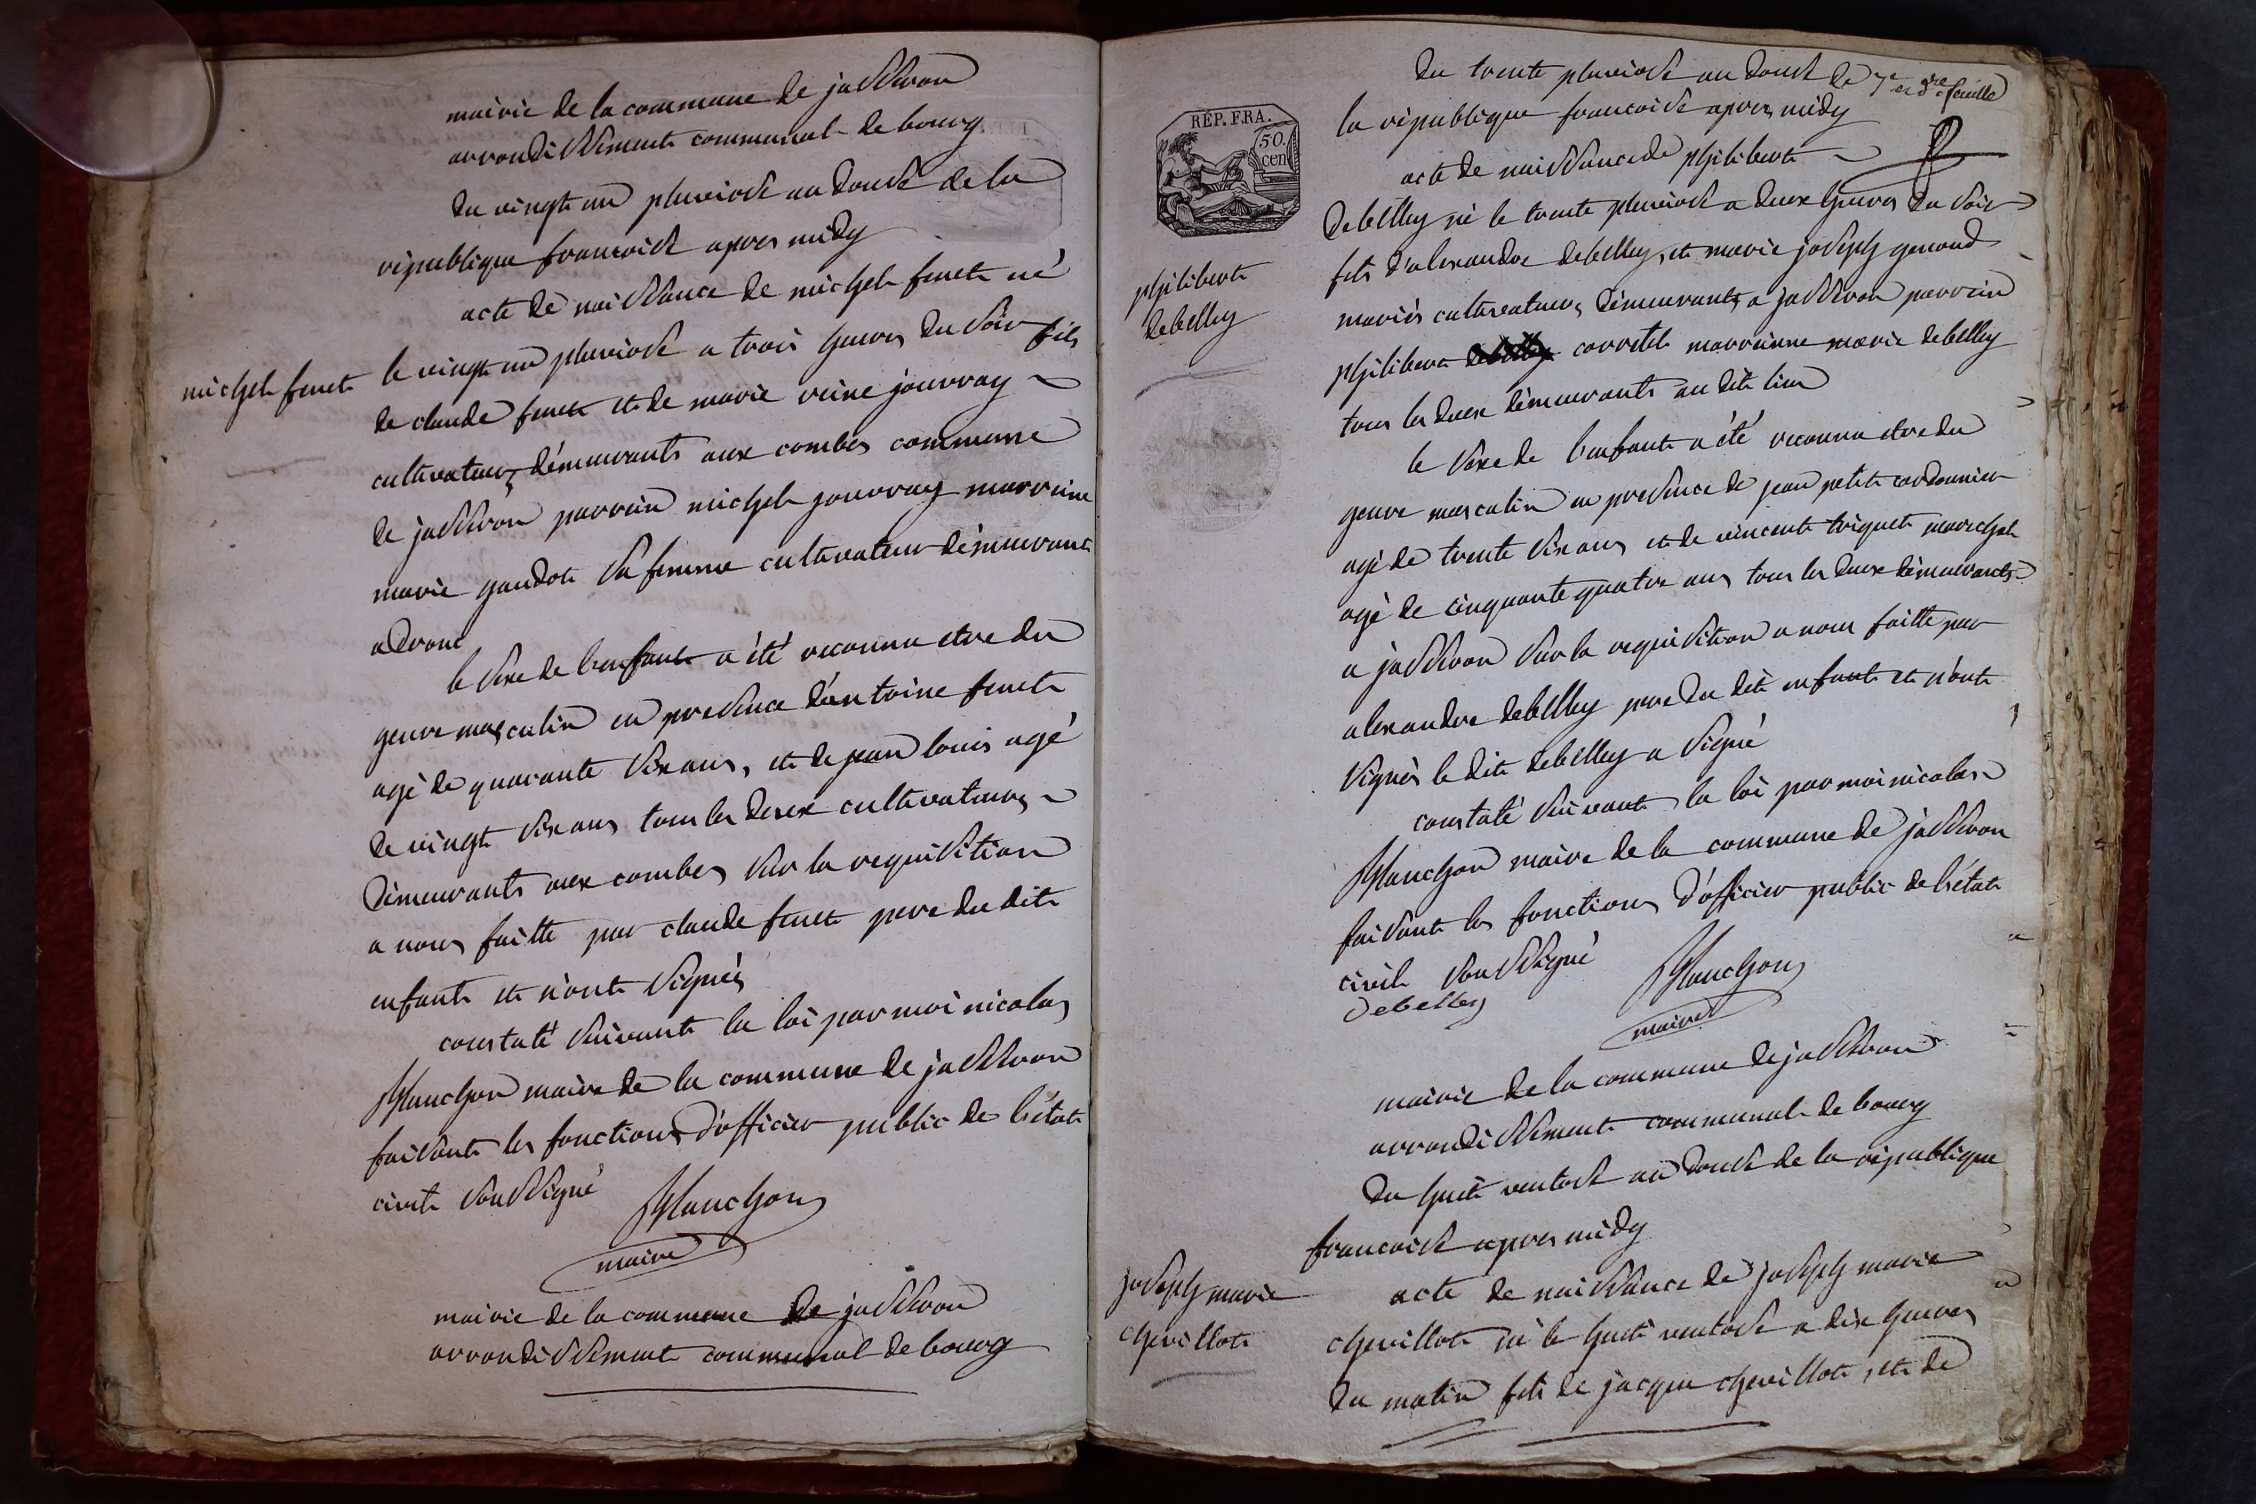 mairie de la commune de jasseron
arrondissement communal de bourg
du vingt un pluviose an douse de la
république francoise apres midy
acte de naissance de michel feuet né
michel feuet
le vingt un pluviose a trois heures du soir fils
de claude feuet et de marie reine jourray
cultivateurs démeurants aux combes commune
de jasseron parrein michel jourray marreine
marie gaudot sa femme cultivateur démeurant
a Drom
le sexe de l'enfant a été reconnu etre du
genre masculin en presence d'antoine feuet
agé de quarante six ans, et de jean louis agé
de vingt six ans tous les deux cultivateurs
démeurants aux combes sur la requisition
a nous faitte par claude feuet pere du dit
enfant et n'ont signés
constaté suivant la loi par moi nicolas
planchon maire de la commune de jasseron
faisant les fonctions d'officier public de l'état
civil soussigné
planchon
maire
mairie de la commune de jasseron
arrondissement communal de bourg
7e et dre feuille
du trente pluviose an douse de
la république francoise apres midy
REP. FRA.
50. cen
acte de naissance de philibert
philibert
debelley
debelley né le trente pluviose a deux heures du soir
fils d'alexandre debelley, et marie joseph genoud
mariés cultivateurs démeurants a jasseron parrein
philibert corretel marreinne marie debelley
tous les deux démeurants au dit lieu
le sexe de l'enfant a été reconnu etre du
genre masculin en presence de jean petit cordonnier
agé de trente six ans et de vincent triquet marechal
agé de cinquante quatre ans tous les deux démeurants
a jasseron sur la requisition a nous faitte par
alexandre debelley pere du dit enfant et n'ont
signés le dit debelley a signé
constaté suivant la loi par moi nicolas
planchon maire de la commune de jasseron
faisant les fonctions d'officier public de l'état
civil soussigné
planchon
debelley
maire
mairie de la commune de jasseron
arrondissement communal de bourg
du huit ventose an douse de la république
francoise apres midy
joseph marie
chevillot
acte de naissance de joseph marie
chevillot né le huit ventose a dix heures
du matin fils de jacque chevillot, et de